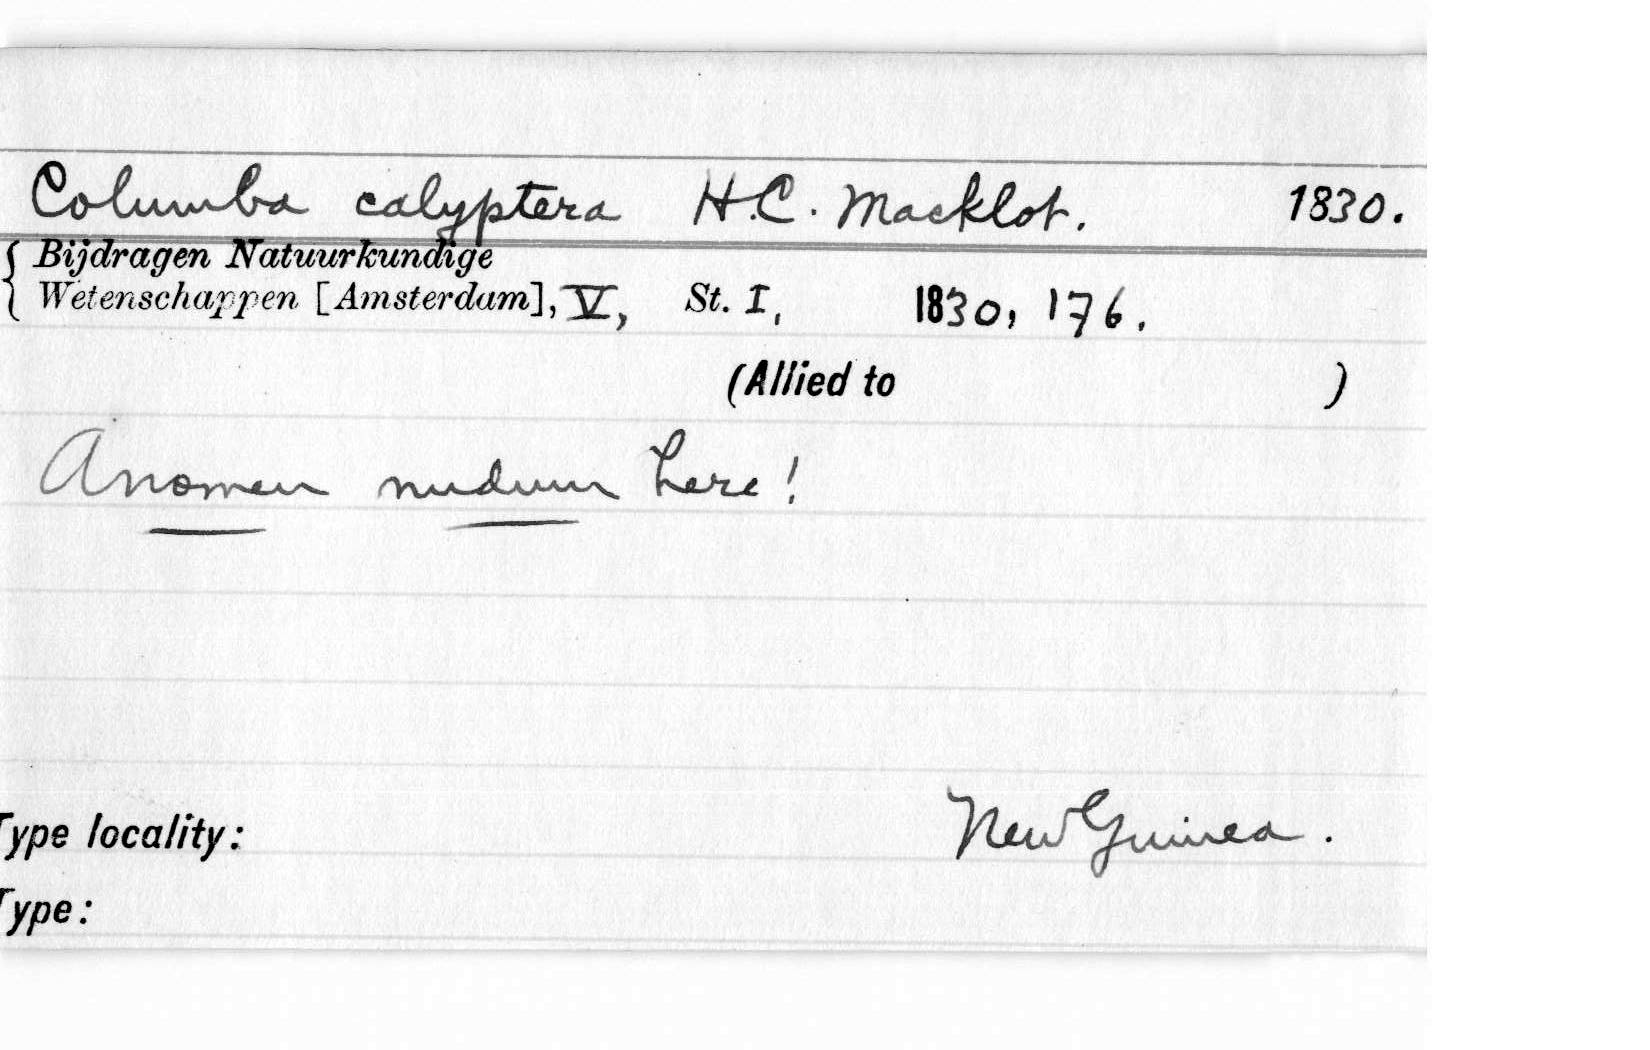 Columba calyptera H.C. Macklot. 1830.
Bijdragen Natuurkundige
Wetenschappen [Amsterdam], V, St. I, 1830, 176.
(Allied to )
A nomen nudum here!
Type locality: New Guinea.
Type: